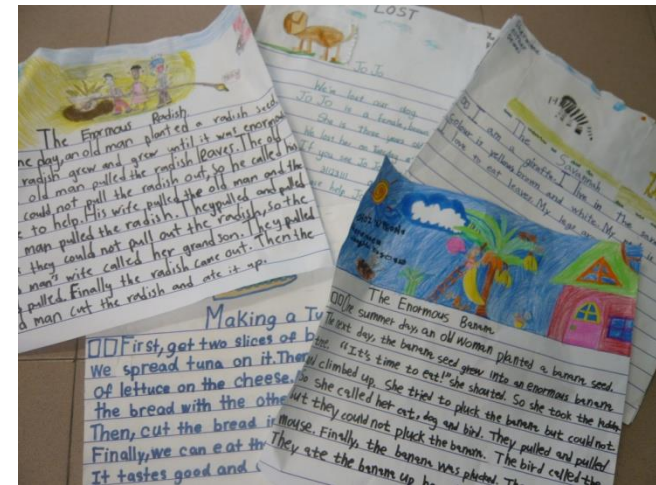 The Enormous Radish
ne day, an old man planted a radish seed.
radish grew and grew until it was enormous
old man pulled the radish leaves. The old
could not pull the radish out, so he called his
e to help. His wife pulled the old man and the
man pulled the radish. They pulled and pulled
they could not pull out the radish, so the
man's wife called her grandson. They pulled
pulled. Finally the radish came out. Then the
d man cut the radish and ate it up.
LOST
Jo Jo
We've lost our dog
Jo Jo is a female, brown
She is three years old
We lost her on Tuesday
If you see Jo Jo
help Jo
The Savannah
I am a giraffe. I live in the sava
colour is yellow, brown and white. My
love to eat leaves. My legs are
Making a Tu
First, get two slices of b
We spread tuna on it. Then
of lettuce on the cheese.
the bread with the othe
Then, cut the bread i
Finally, we can eat th
It tastes good and
The Enormous Banana
One summer day, an old woman planted a banana seed.
The next day, the banana seed grew into an enormous banana
tree. "It's time to eat!" she shouted. So she took the ladder
and climbed up. She tried to pluck the banana but could not
So she called her cat, dog and bird. They pulled and pulled
but they could not pluck the banana. The bird called the
mouse. Finally, the banana was plucked. Th
They ate the banana up